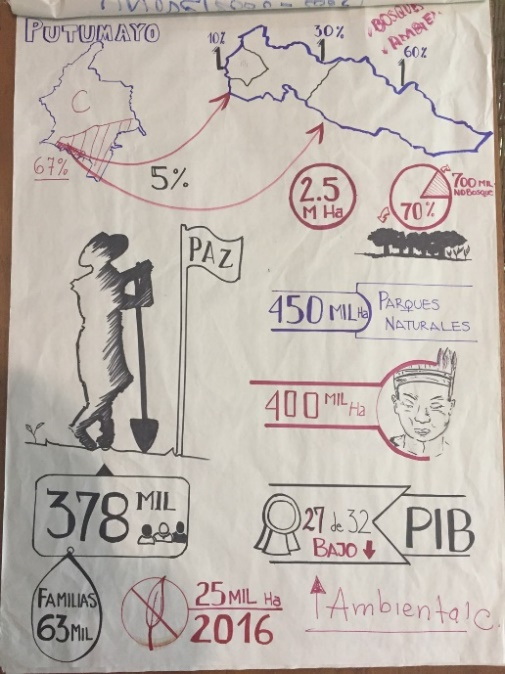 PUTUMAYO
BOSQUES
AMBIE
10%
30%
60%
C
67%
5%
2.5
M Ha
70%
700 MIL
NO BOSQUE
PAZ
450 MIL Ha
PARQUES
NATURALES
400 MIL Ha
378 MIL
27 de 32
BAJO
PIB
FAMILIAS
63 MIL
25 MIL Ha
2016
Ambiental C.